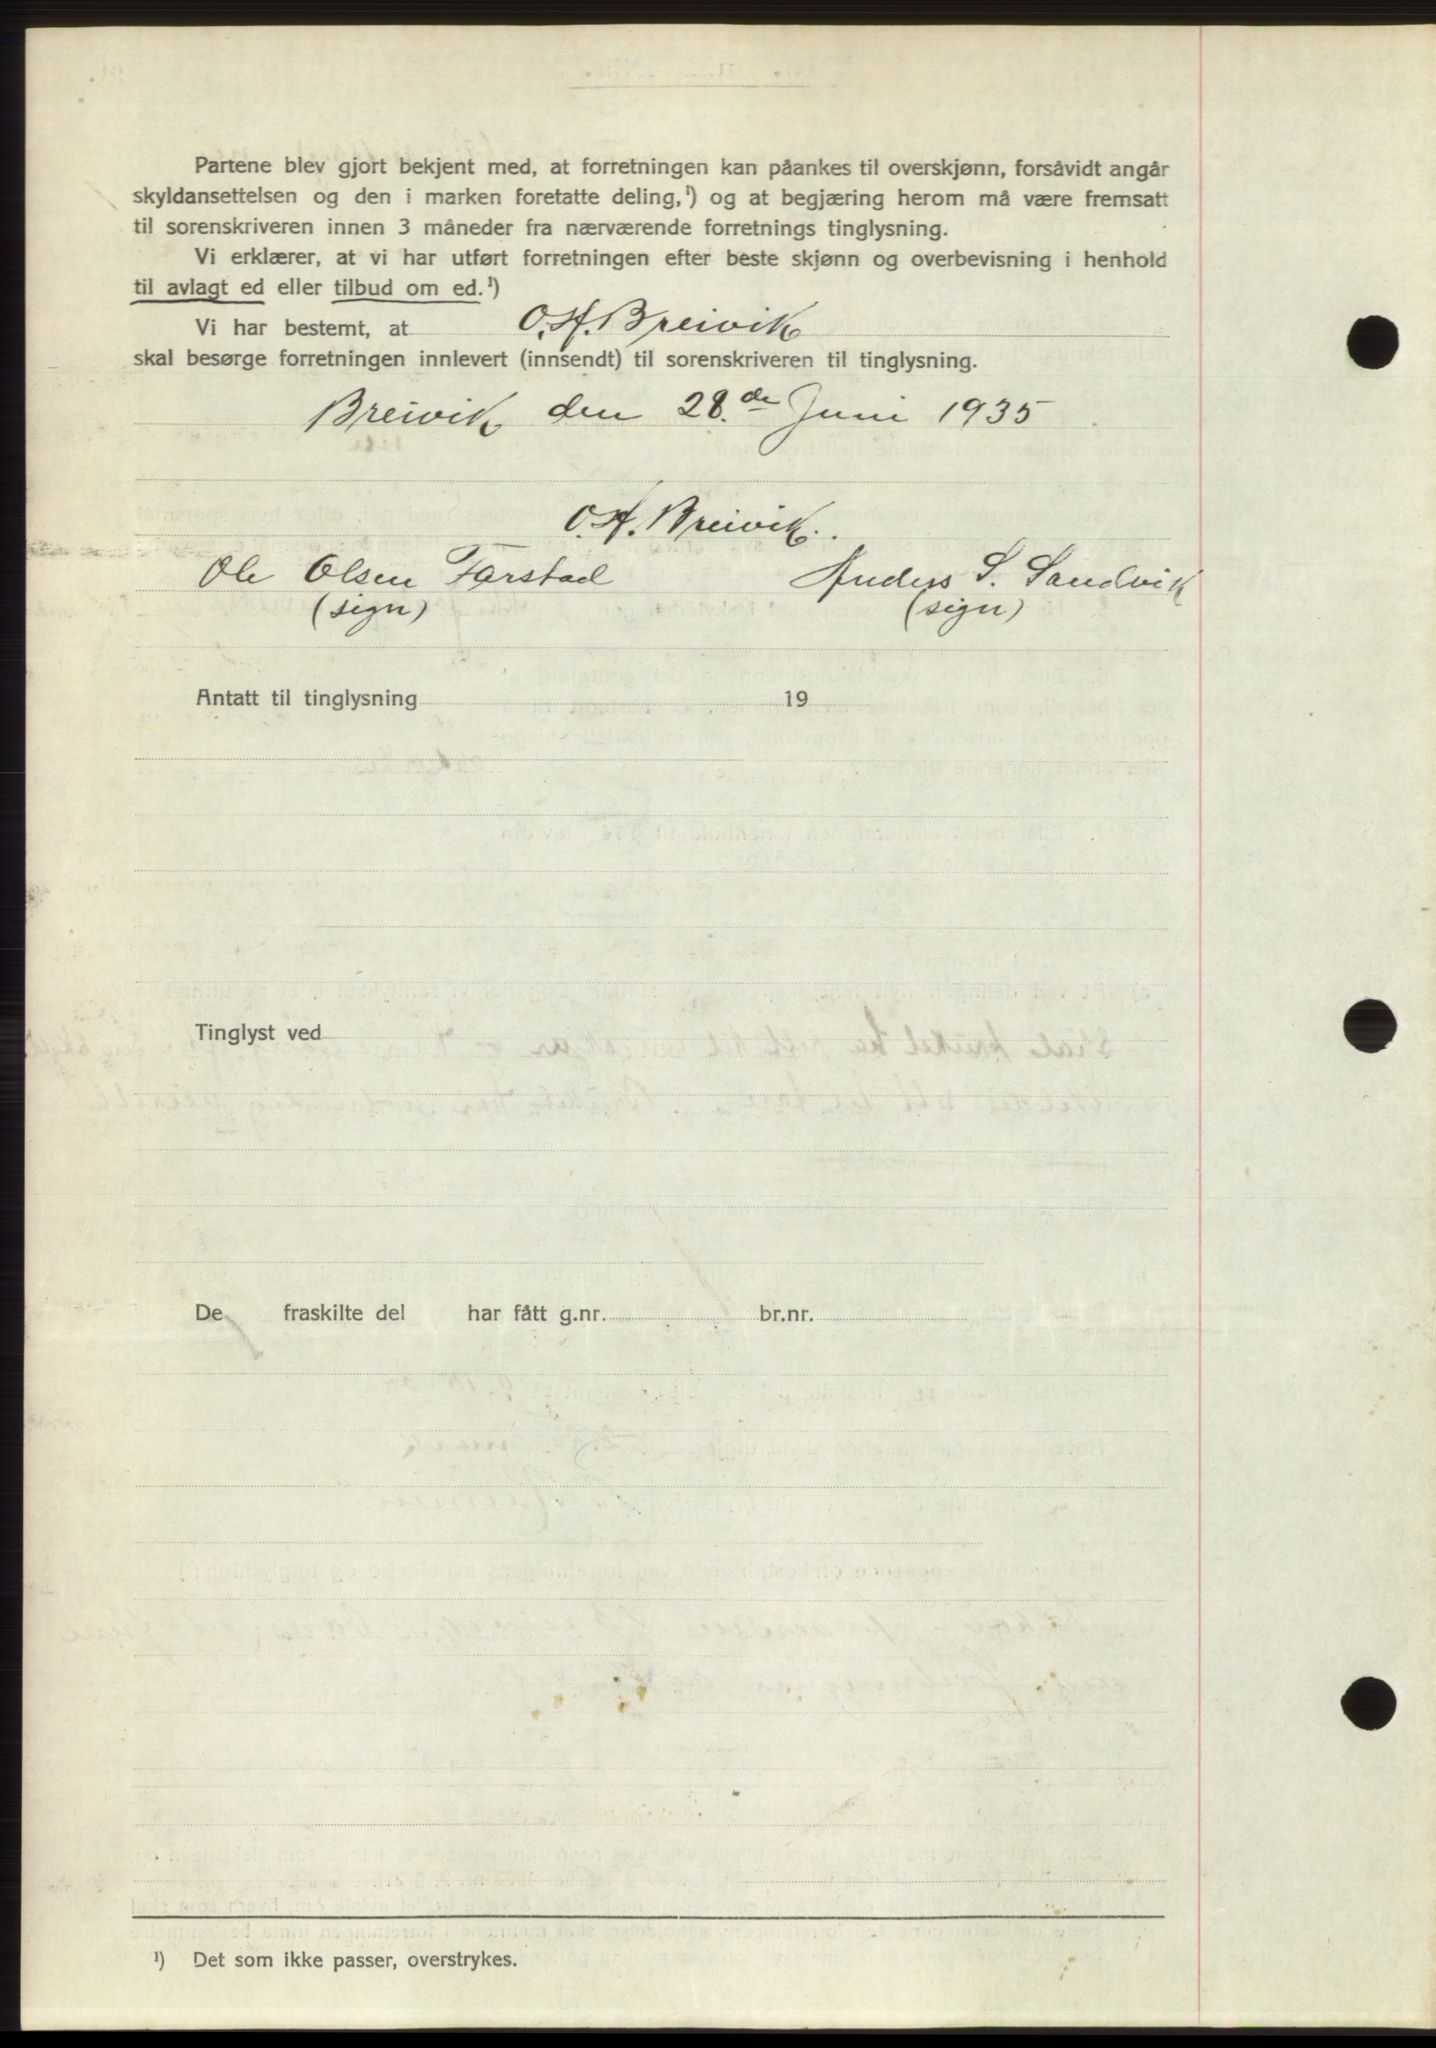 Partene blev gjort bekjent med, at forretningen kan påankes til overskjønn, forsåvidt angår
skyldansettelsen og den i marken foretatte deling,¹) og at begjæring herom må være fremsatt
til sorenskriveren innen 3 måneder fra nærværende forretnings tinglysning.
Vi erklærer, at vi har utført forretningen efter beste skjønn og overbevisning i henhold
til avlagt ed eller tilbud om ed.¹)
Vi har bestemt, at O. A. Breivik
skal besørge forretningen innlevert (innsendt) til sorenskriveren til tinglysning.
Breivik den 28.de Juni 1935
O. A. Breivik.
Ole Olsen Farstad Anders S. Sandvik
(sign) (sign)
Antatt til tinglysning 19
Tinglyst ved
De fraskilte del har fått g.nr. br.nr.
¹) Det som ikke passer, overstrykes.